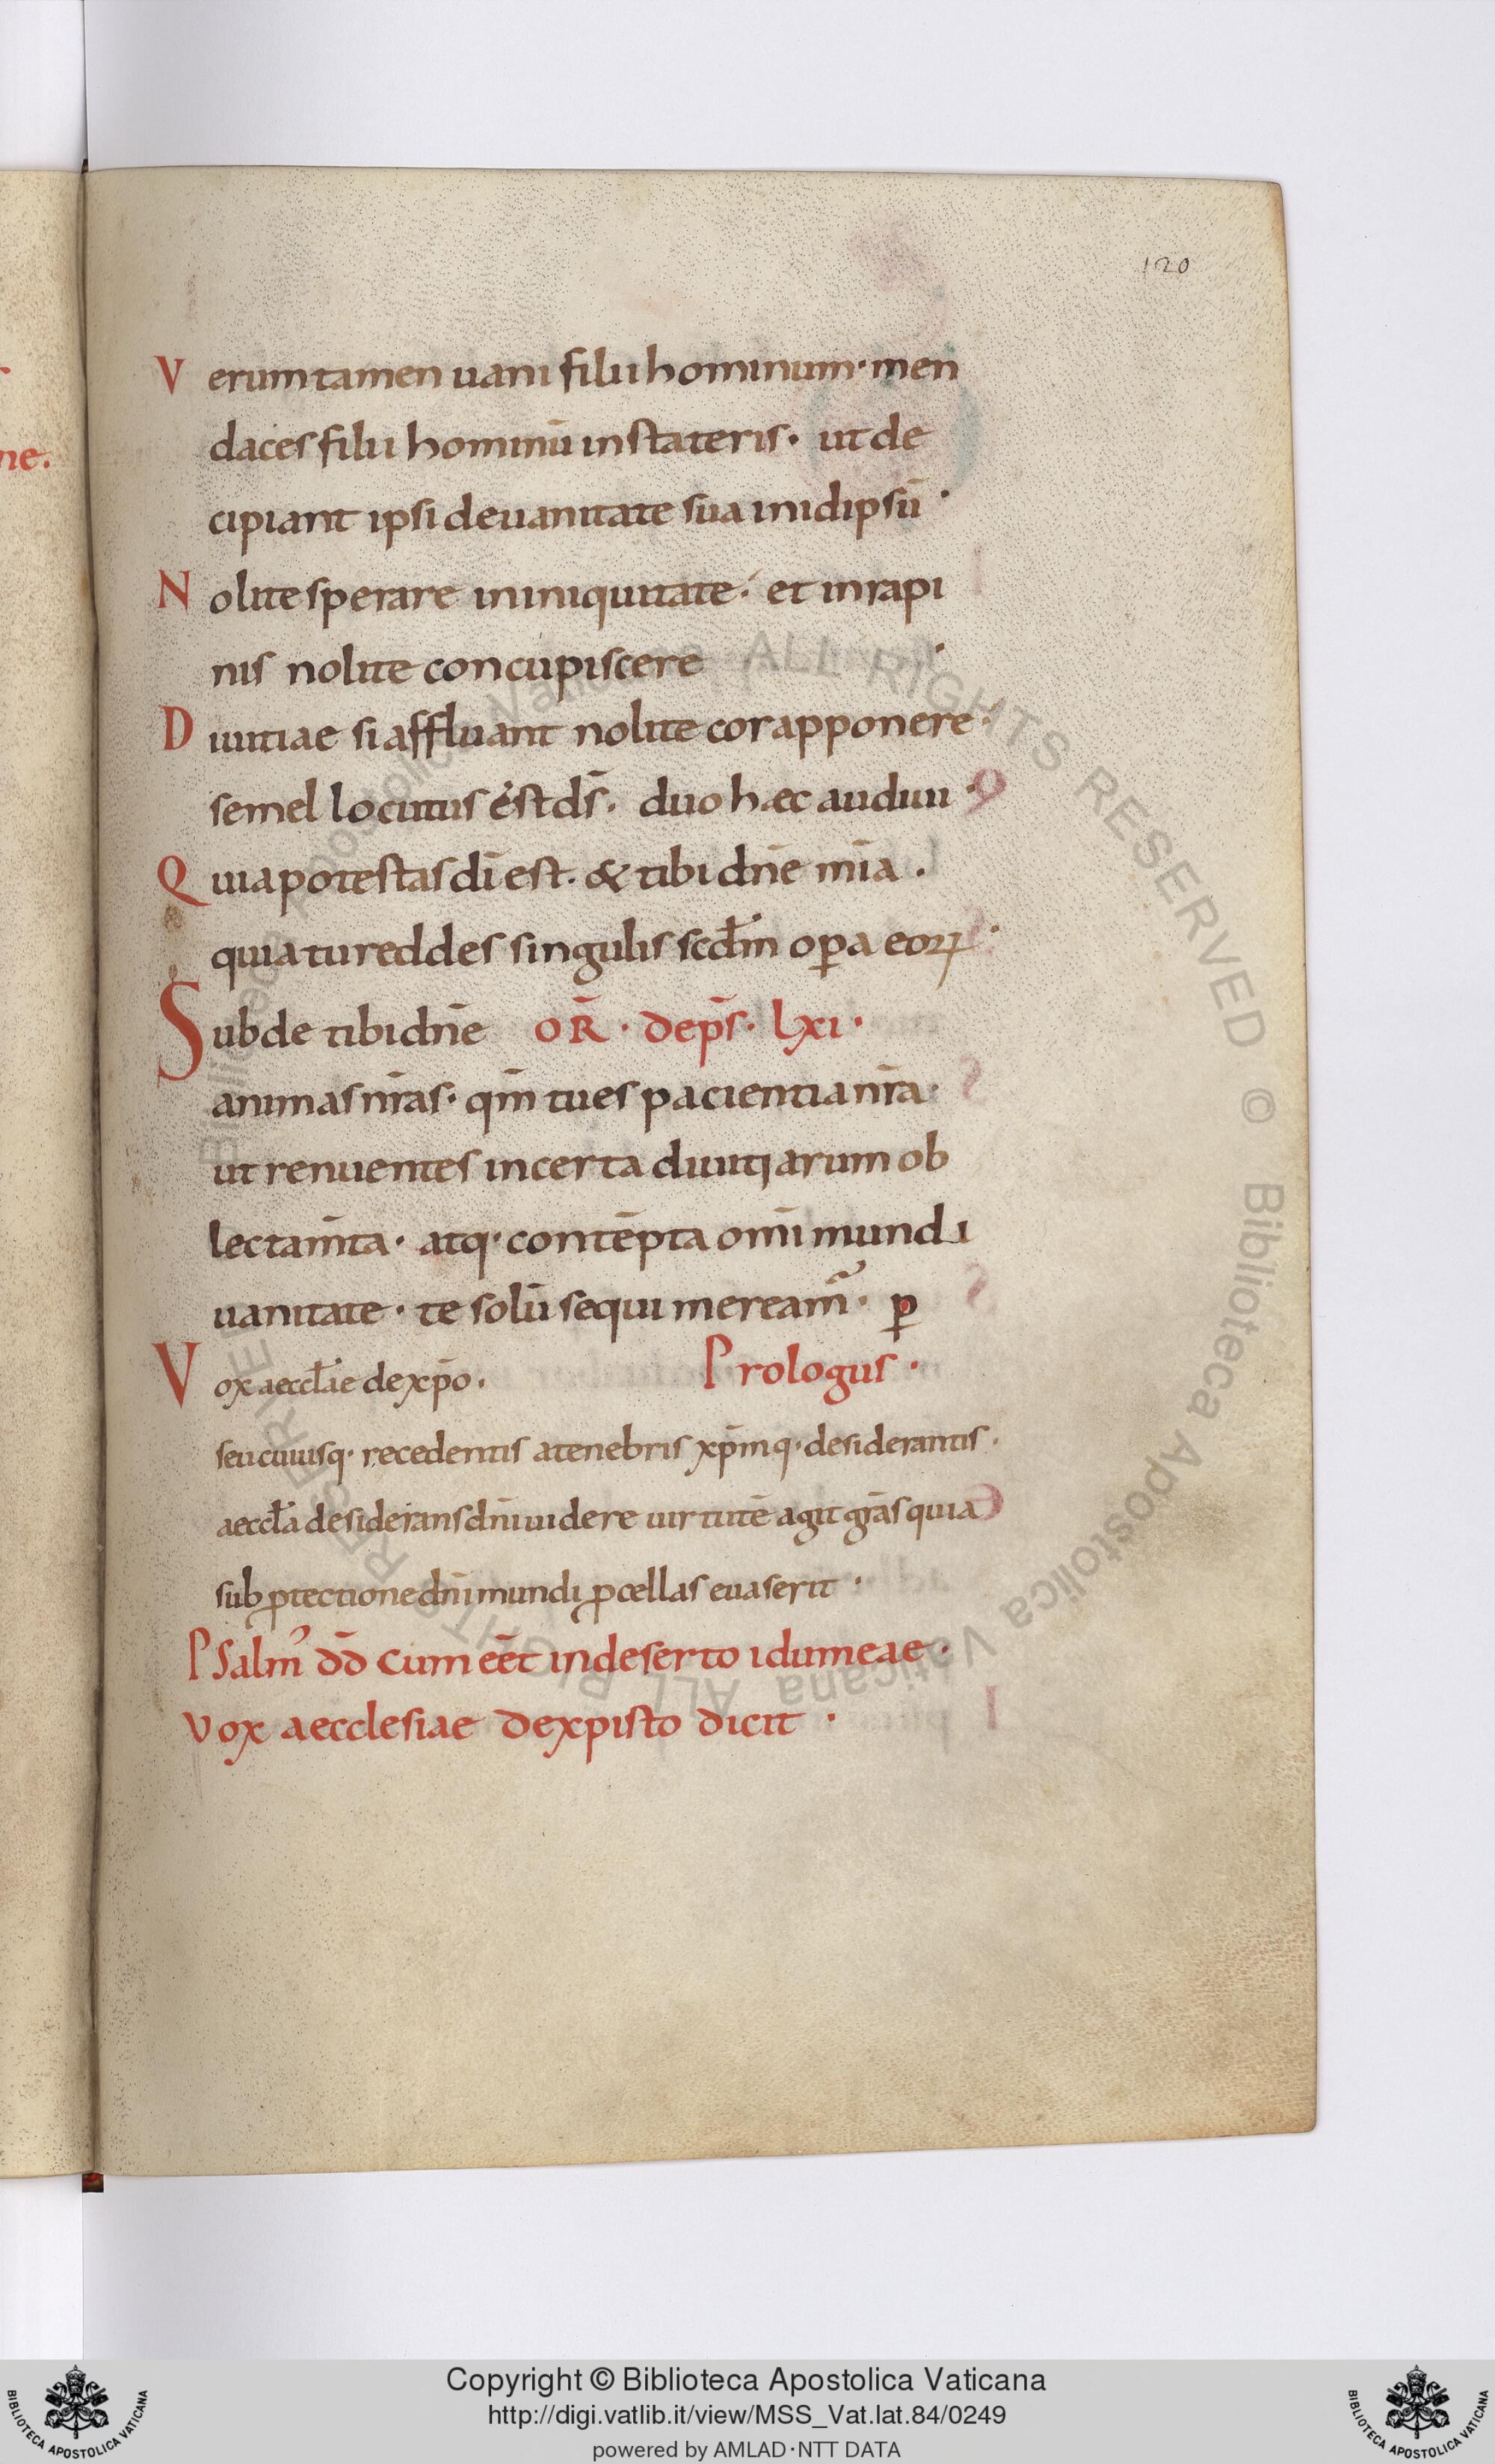 120
Verumtamen uani filii hominum· men
daces filii hominū in stateris· ut de
cipiant ipsi deuanitate sua inidipsū·
Nolite sperare in iniquitate· et in rapi
nis nolite concupiscere·
Diuitiae si affluant nolite cor apponere·
semel locutus est ds̄· duo hæc audiui·
Quia potestas dī est· & tibi dn̄e mīa·
quia tu reddes singulis scd̄m oꝑa eoꝝ·
Subde tibi dn̄e OR̄· de ps̄· lxi·
animas nr̄as· qm̄ tu es pacientia nr̄a·
ut renuentes incerta diuitiarum ob
lectam̄ta· atq· contēpta om̄i mundi
uanitate· te solū sequi meream̄· ꝑ
Vox aeccl̄ae de xp̄o· Prologus·
seu cuiusq· recedentis atenebris xp̄mq· desiderantis·
aeccl̄a desiderans dn̄i uidere uirtutē agit gr̄as quia
sub ꝓtectione dn̄i mundi ꝓcellas euaserit·
Psalm̄ dd̄ cum eēt in deserto idumeae·
Vox aecclesiae dexpisto dicit·
Copyright © Biblioteca Apostolica Vaticana
http://digi.vatlib.it/view/MSS_Vat.lat.84/0249
powered by AMLAD·NTT DATA
BIBLIOTECA APOSTOLICA VATICANA
BIBLIOTECA APOSTOLICA VATICANA
Biblioteca Apostolica Vaticana ALL RIGHTS RESERVED © Biblioteca Apostolica Vaticana ALL RIGHTS RESERVED
ne.